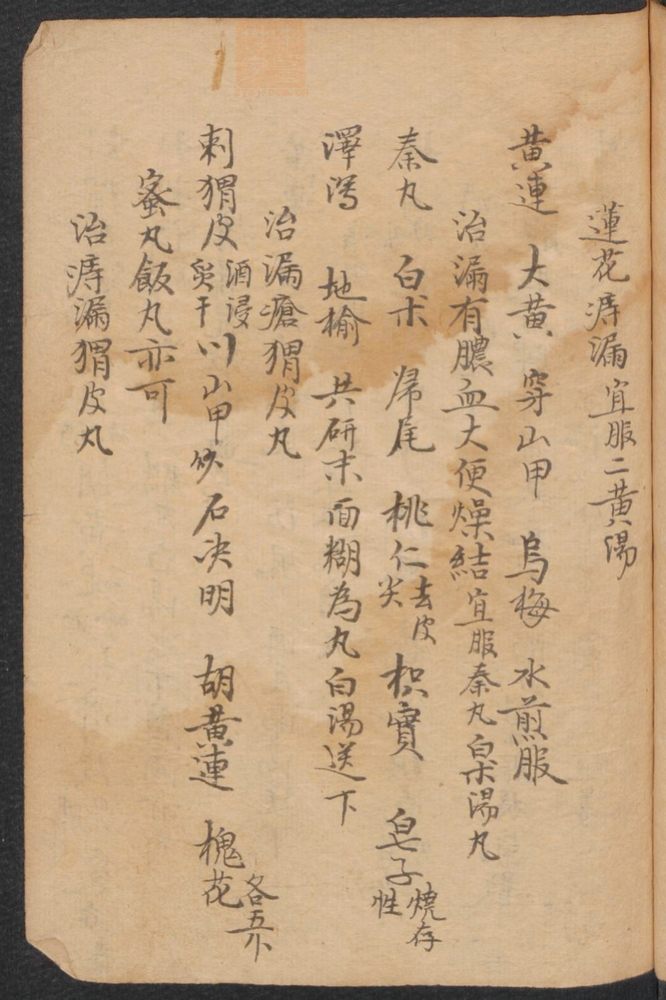 蓮花痔漏宜服二黃湯
黃連 大黃 穿山甲 烏梅 水煎服
治漏有膿血大便燥結宜服秦丸白朮湯丸
秦丸 白朮 歸尾 桃仁去皮尖 枳實 皂子燒存性
澤瀉 地榆 共研末面糊為丸白湯送下
治漏瘡猬皮丸
刺猬皮酒浸炙干川山甲炒石決明 胡黃連 槐花各五
蜜丸飯丸亦可
治痔漏猬皮丸